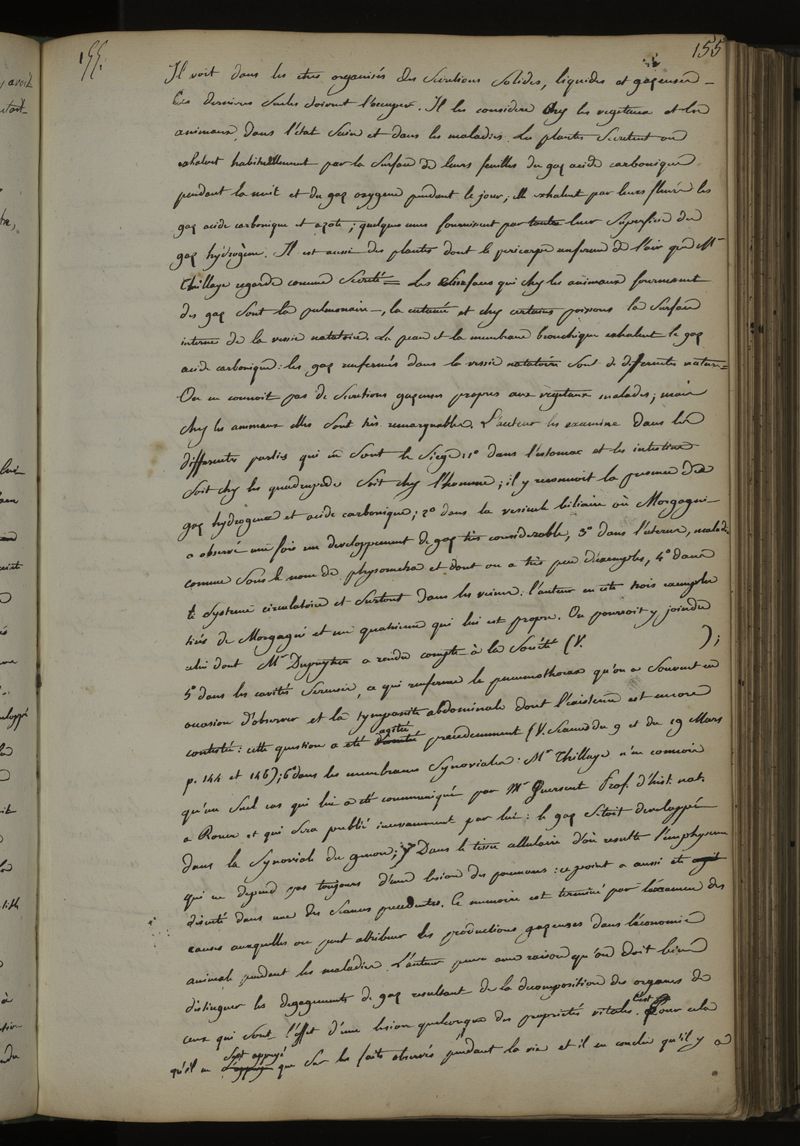 155.
155
Il voit dans les etres organisés des Secretions Solides, liquides et gazeuses –
Ces dernieres Seules doivent l'occuper. Il les considere chez les vegetaux et les
animaux, dans l'état Sain et dans les maladies. Les plantes Secretent ou
exhalent habituellement par la Surface de leurs feuilles du gaz acide carbonique
pendant la nuit et du gaz oxygene pendant le jour; elles exhalent par leurs fleurs les
gaz acide carbonique et azote; quelques unes fournissent par toute leur Superficie du
gaz hydrogène. Il est aussi des plantes dont le pericarpe renferme de l'air que Mr
Thillaye regarde comme Secreté = Les Surfaces qui chez les animaux fournissent
des gaz Sont la pulmonaire –, la cutanée et chez certains poissons la Surface
interne de la vessie natatoire. La peau et la membrane bronchique exhalent le gaz
acide carbonique: les gaz renfermés dans la vessie natatoire Sont de differente nature =
On ne connoit pas de Secretions gazeuses propres aux vegetaux malades; mais
chez les animaux elles Sont très remarquables. L'auteur les examine dans les
differentes parties qui en Sont le Siege 1o dans l'estomac et les intestins
Soit chez les quadrupedes Soit chez l'homme; il y reconnoit la presence des
gaz hydrogene et acide carbonique; 2o dans la vesicule biliaire où Morgagni –
a observé une fois un developpement de gaz très considerable, 3o dans l'uterus, maladie
connue Sous le nom de physometra et dont on a très peu d'exemples, 4o dans
le Systeme circulatoire et Surtout dans les veines: l'auteur en cite trois exemples
tirés de Morgagni et un quatrieme qui lui est propre. On pourroit y joindre
celui dont Mr Dupuytren a rendu compte à la Société (V. );
5o dans les cavités Sereuses, ce qui renferme le pneumothorax qu'on a Souvent eu
occasion d'observer et la tympanite abdominale dont l'existence est encore
contestée: cette question a été agitée precedemment (V. Seances du 9 et du 19 Mars
p. 144 et 146); 6o dans les membranes Synoviales. Mr Thillaye n'en connoit
qu'un Seul cas qui lui a été communiqué par Mr Guersent Prof. d'hist. nat.
a Rouen et qui Sera publié incessamment par lui: le gaz S'etoit developpé
dans la Synoviale du genou; 7o Dans le tissu cellulaire d'où resulte l'emphyseme
qui ne depend pas toujours d'une lesion des poumons: ce point a aussi été
discuté dans une des Seances precedentes. Ce memoire est terminé par l'examen des
causes auxquelles on peut attribuer les productions gazeuses dans l'économie
animale pendant les maladies. L'auteur pense avec raison qu'on doit bien
distinguer les degagements de gaz resultant de la decomposition des organes de
ceux qui Sont l'effet d'une lesion quelconque des proprietés vitales. Pour cela
qu'il ne S'est appuyé que Sur les faits observés pendant la vie et il en conclut qu'il y a